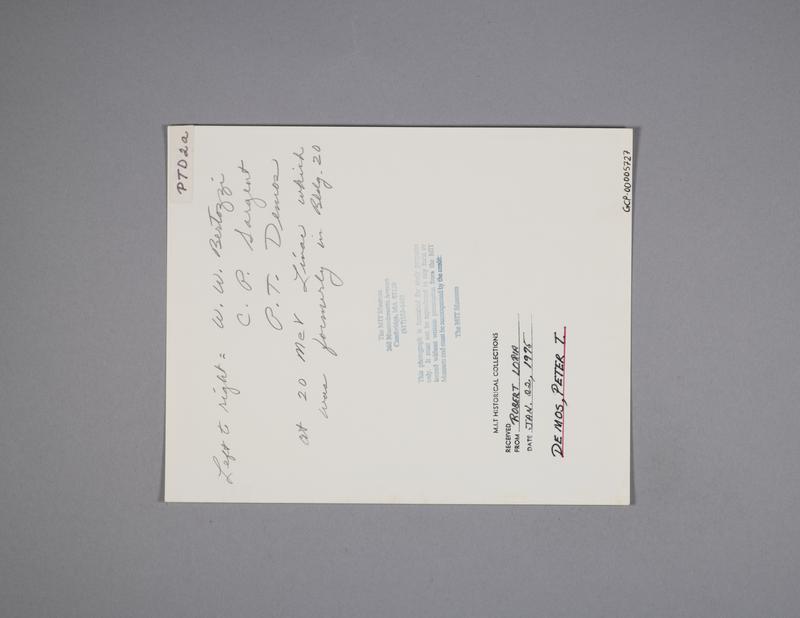 PTD2a
Left to right = W. W. Bertozzi
C. P. Sargent
P. T. Demos
at 20 MeV Linac which
was formerly in Bldg. 20
The MIT Museum
265 Massachusetts Avenue
Cambridge, MA 02139
This photograph is intended for study purposes
only. It must not be reproduced in any form or
loaned without written permission from the MIT
Museum and must be accompanied by the credit:
The MIT Museum
M.I.T HISTORICAL COLLECTIONS
RECEIVED
FROM ROBERT
DATE JAN. 22, 1975
DEMOS, PETER T.
GCP-00005727